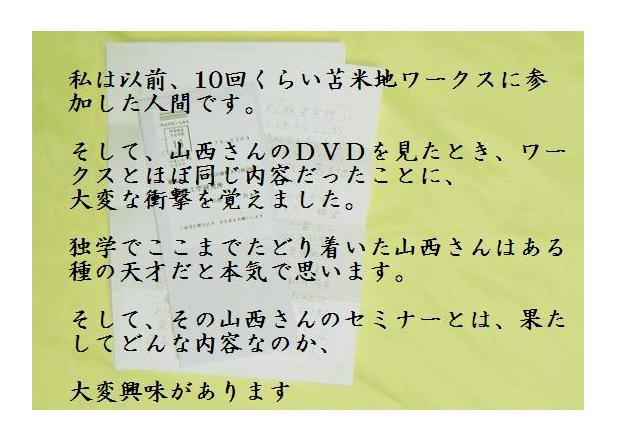 私は以前、10回くらい苫米地ワークスに参
加した人間です。
そして、山西さんのＤＶＤを見たとき、ワー
クスとほぼ同じ内容だったことに、
大変な衝撃を覚えました。
独学でここまでたどり着いた山西さんはある
種の天才だと本気で思います。
そして、その山西さんのセミナーとは、果た
してどんな内容なのか、
大変興味があります